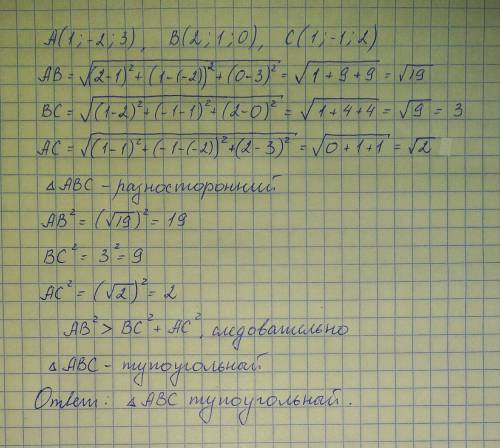 A(1;-2;3), B(2;1;0), C(1;-1;2)
AB = √((2-1)² + (1-(-2))² + (0-3)²) = √(1+9+9) = √19
BC = √((1-2)² + (-1-1)² + (2-0)²) = √(1+4+4) = √9 = 3
AC = √((1-1)² + (-1-(-2))² + (2-3)²) = √(0+1+1) = √2
△ABC - разносторонний
AB² = (√19)² = 19
BC² = 3² = 9
AC² = (√2)² = 2
AB² > BC² + AC², следовательно
△ABC - тупоугольный
Ответ: △ABC тупоугольный.